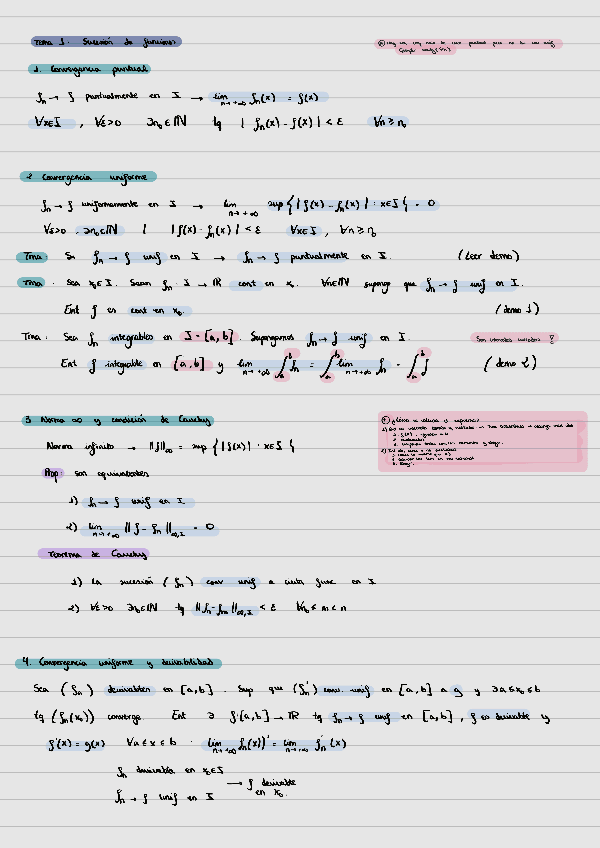 Tema 1. Sucesión de funciones
1. Convergencia puntual
fn → f puntualmente en I → lim n→+∞ fn(x) = f(x)
∀x∈I, ∀ε>0 ∃n₀∈ℕ tq |fn(x) - f(x)| < ε ∀n ≥ n₀
2 Convergencia uniforme
fn → f uniformemente en I → lim n→+∞ sup{|f(x) - fn(x)| : x∈I} = 0
∀ε>0 ∃n₀∈ℕ / |f(x) - fn(x)| < ε ∀x∈I, ∀n ≥ n₀
Tma: Si fn → f unif en I → fn → f puntualmente en I. (Leer demo)
Tma: Sea x₀∈I. Sean fn: I → ℝ cont en x₀ ∀n∈ℕ supong que fn → f unif en I.
Ent f es cont en x₀. (demo 1)
Tma: Sea fn integrables en I = [a,b]. Supongamos fn → f unif en I.
Ent f integrable en [a,b] y lim n→+∞ ∫ₐᵇ fn = ∫ₐᵇ lim n→+∞ fn = ∫ₐᵇ f (demo 2)
3 Norma ∞ y condición de Cauchy
Norma infinito → ||f||∞ = sup{|f(x)| : x∈I}
Prop: son equivalentes
1) fn → f unif en I
2) lim n→+∞ ||f - fn||∞,I = 0
Teorema de Cauchy
1) La sucesión (fn) conv unif a cierta func en I
2) ∀ε>0 ∃n₀∈ℕ tq ||fn - fm||∞,I < ε ∀n₀ ≤ m < n
4. Convergencia uniforme y derivabilidad
Sea (fn) derivables en [a,b]. Sup que (fn') conv. unif en [a,b] a g y ∃a≤x₀≤b
tq (fn(x₀)) converge. Ent ∃ f:[a,b] → ℝ tq fn → f unif en [a,b], f es derivable y
f'(x) = g(x) ∀a ≤ x ≤ b · (lim n→+∞ fn(x))' = lim n→+∞ fn'(x)
fn derivable en x₀∈I
→ f derivable en x₀.
fn → f unif en I